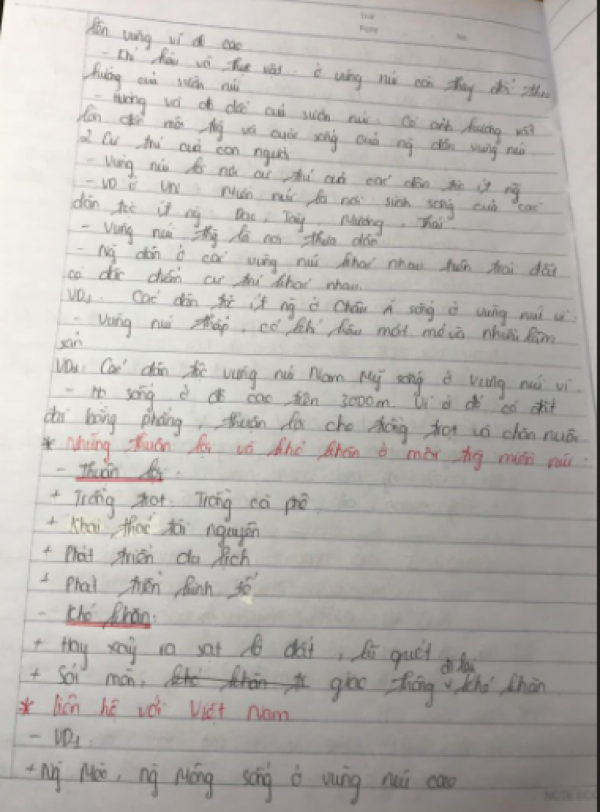 lên vùng vĩ độ cao
- Khí hậu và thực vật ở vùng núi còn thay đổi theo
hướng của sườn núi
- Hướng và độ dốc của sườn núi. Có ảnh hưởng rất
lớn đến môi trg và cuộc sống của ng dân vùng núi
2 Cư trú của con người
- Vùng núi là nơi cư trú của các dân tộc ít ng
- VD ở VN: Miền núi là nơi sinh sống của các
dân tộc ít ng Dao, Tày, Mường, Thái
- Vùng núi thg là nơi thưa dân
- Ng dân ở các vùng núi khác nhau trên trái đất
có đặc điểm cư trú khác nhau.
VD1. Các dân tộc ít ng ở Châu Á sống ở vùng núi vì
- Vùng núi thấp, có khí hậu mát mẻ và nhiều lâm
sản
VD2. Các dân tộc vùng núi Nam Mỹ sống ở vùng núi vì
- Họ sống ở độ cao trên 3000m. Vì ở đó có đất
đai bằng phẳng, thuận lợi cho trồng trọt và chăn nuôi
* Những thuận lợi và khó khăn ở môi trg miền núi:
- Thuận lợi:
+ Trồng trọt. Trồng cà phê
+ Khai thác tài nguyên
+ Phát triển du lịch
+ Phát triển kinh tế
- Khó khăn:
+ Hay xảy ra sạt lở đất, lũ quét
+ Sói mòn, khó khăn giao thông đi lại khó khăn
* Liên hệ với Việt Nam
- VD1.
+ Ng Mèo, ng Mông sống ở vùng núi cao
NOTE